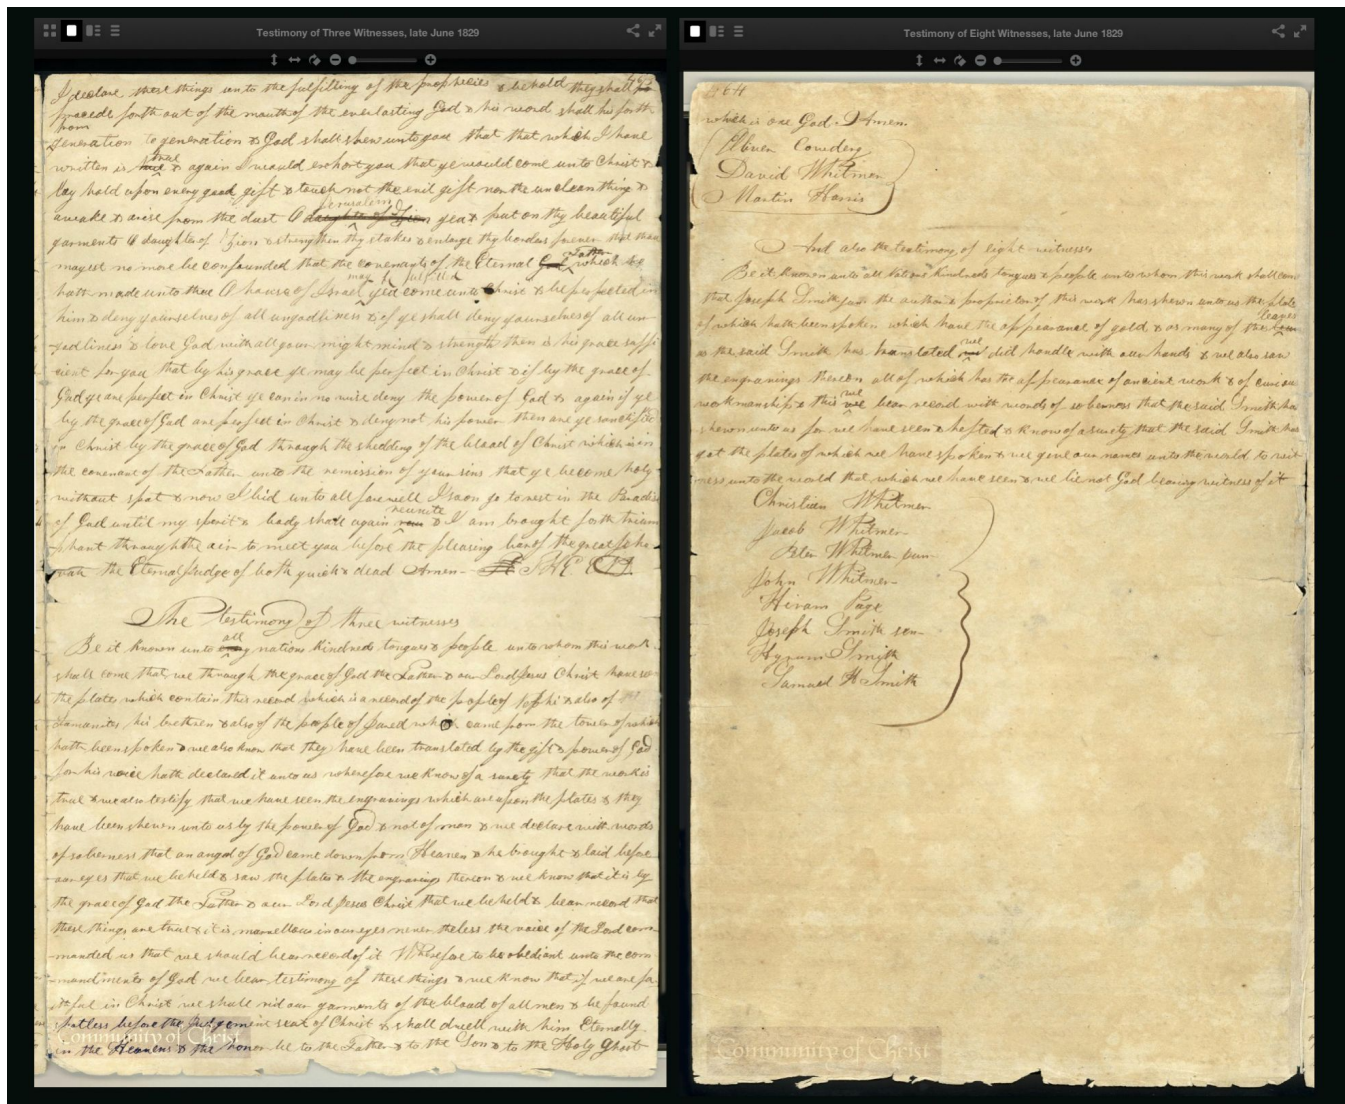 Testimony of Three Witnesses, late June 1829
463
I declare these things unto the fulfilling of the prophecies & behold they shall
proceed forth out of the mouth of the everlasting God & his word shall his forth
from
generation to generation & God shall shew unto you that that which I have
true
written is & again I would exhort you that ye would come unto Christ &
lay hold upon every good gift & touch not the evil gift nor the unclean thing &
Jerusalem
awake & arise from the dust O daughter of Zion yea & put on thy beautiful
garments O daughter of Zion & strengthen thy stakes & enlarge thy borders forever that thou
Father
mayest no more be confounded that the covenants of the Eternal God which he
may be fulfilled
hath made unto thee O house of Israel yea come unto Christ & be perfected in
him & deny yourselves of all ungodliness & if ye shall deny yourselves of all un-
godliness & love God with all your might mind & strength then is his grace suffi
cient for you that by his grace ye may be perfect in Christ & if by the grace of
God ye are perfect in Christ ye can in no wise deny the power of God & again if ye
by the grace of God are perfect in Christ & deny not his power then are ye sanctified
in Christ by the grace of God through the shedding of the blood of Christ which is in
the covenant of the Father unto the remission of your sins that ye become holy
without spot & now I bid unto all farewell I soon go to rest in the Paradise
reunite
of God until my spirit & body shall again & I am brought forth trium
phant through the air to meet you before the pleasing bar of the great Jeho
vah the Eternal Judge of both quick & dead Amen-
The testimony of three witnesses
all
Be it known unto nations kindreds tongues & people unto whom this work
shall come that we through the grace of God the Father & our Lord Jesus Christ have seen
the plates which contain this record which is a record of the people of Nephi & also of the
Lamanites his brethren & also of the people of Jared which came from the tower of which
hath been spoken & we also know that they have been translated by the gift & power of God
for his voice hath declared it unto us wherefore we know of a surety that the work is
true & we also testify that we have seen the engravings which are upon the plates & they
have been shewn unto us by the power of God & not of man & we declare with words
of soberness that an angel of God came down from Heaven & he brought & laid before
our eyes that we beheld & saw the plates & the engravings thereon & we know that it is by
the grace of God the Father & our Lord Jesus Christ that we beheld & bear record that
these things are true & it is marvellous in our eyes never the less the voice of the Lord com
manded us that we should bear record of it Wherefore to be obedient unto the com
mandments of God we bear testimony of these things & we know that if we are fa
ithful in Christ we shall rid our garments of the blood of all men & be found
spotless before the Judgement seat of Christ & shall dwell with him Eternally
in the Heavens & the honor be to the Father & to the Son & to the Holy Ghost
Community of Christ
Testimony of Eight Witnesses, late June 1829
464
which is one God. Amen
Oliver Cowdery
David Whitmer
Martin Harris
And also the testimony of eight witnesses
Be it known unto all nations kindreds tongues & people unto whom this work shall come
that Joseph Smith jun the author & proprietor of this work has shewn unto us the plates
leaves
of which hath been spoken which have the appearance of gold & as many of the
we
as the said Smith has translated did handle with our hands & we also saw
the engravings thereon all of which has the appearance of ancient work & of curious
we
workmanship & this we bear record with words of soberness that the said Smith has
shewn unto us for we have seen & hefted & know of a surety that the said Smith has
got the plates of which we have spoken & we give our names unto the world to wit
ness unto the world that which we have seen & we lie not God bearing witness of it
Christian Whitmer
Jacob Whitmer
Peter Whitmer jun
John Whitmer
Hiram Page
Joseph Smith sen
Hyrum Smith
Samuel H Smith
Community of Christ